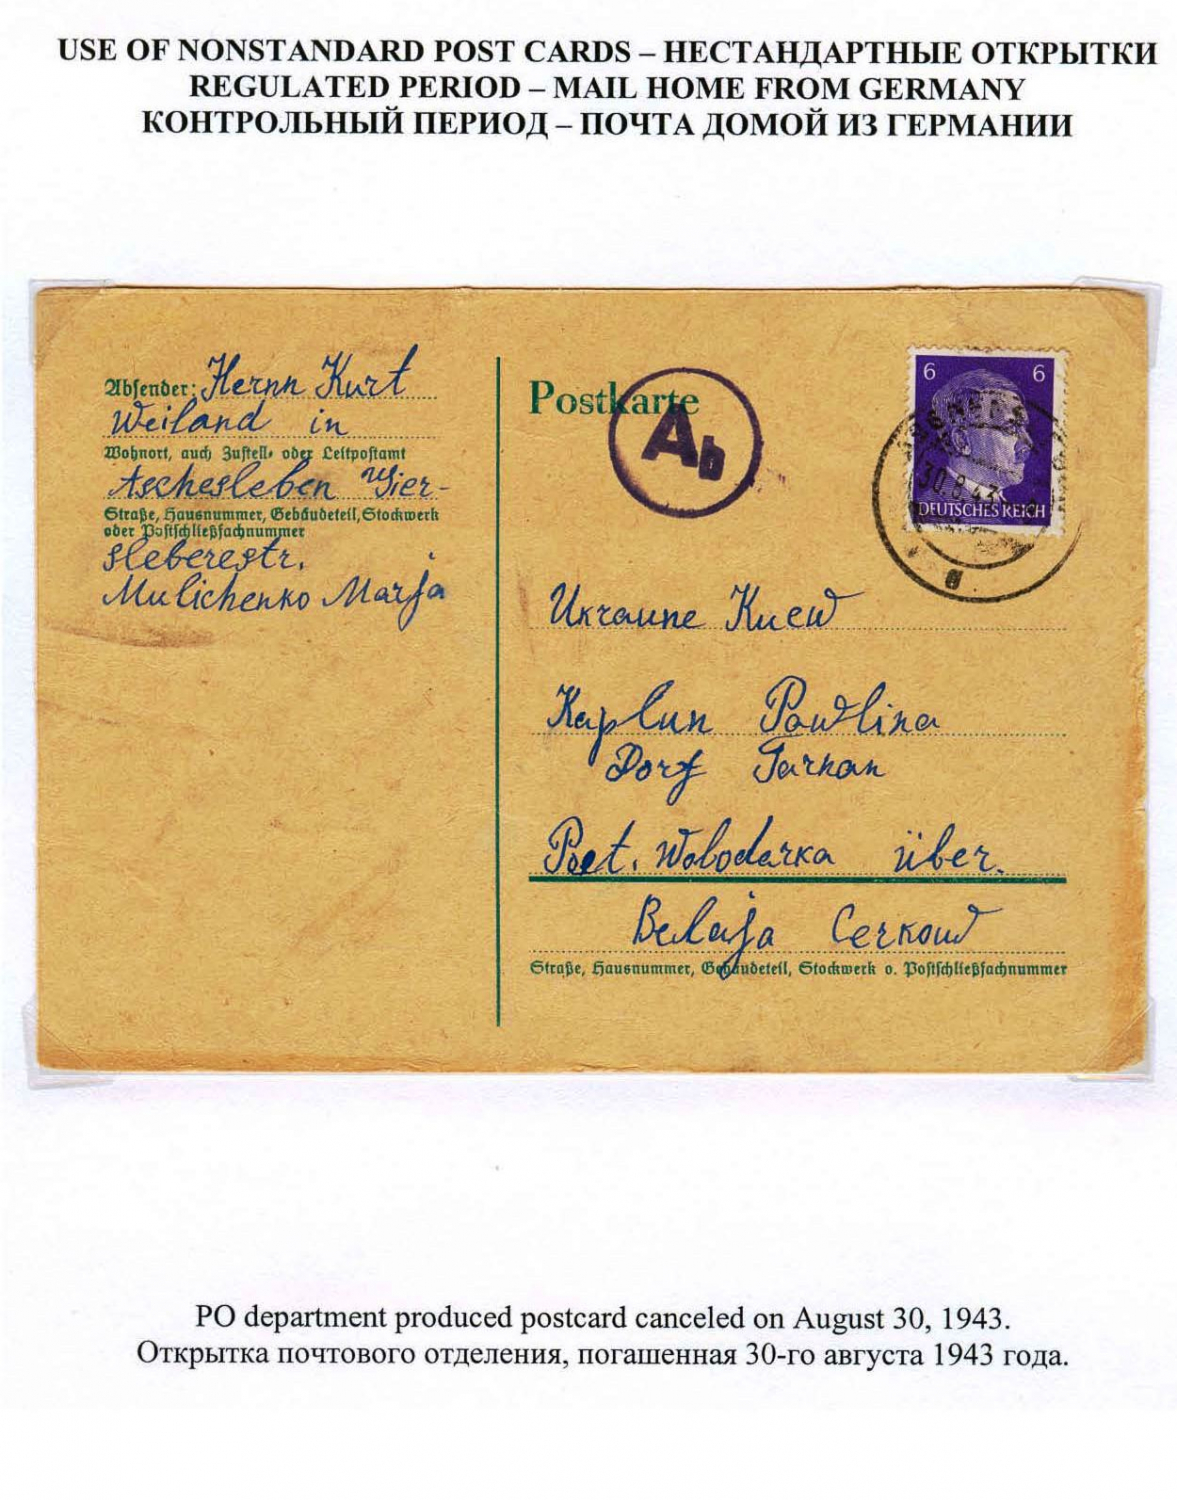 USE OF NONSTANDARD POST CARDS – НЕСТАНДАРТНЫЕ ОТКРЫТКИ
REGULATED PERIOD – MAIL HOME FROM GERMANY
КОНТРОЛЬНЫЙ ПЕРИОД – ПОЧТА ДОМОЙ ИЗ ГЕРМАНИИ
Absender: Hernn Kurt
Weiland in
Wohnort, auch Zustell- oder Leitpostamt
Aschesleben Wier-
Straße, Hausnummer, Gebäudeteil, Stockwerk
oder Postschließfachnummer
sleberestr.
Mulichenko Marja
Postkarte
Ab
6 6
30.8.43
DEUTSCHES REICH
Ukraune Kuew
Kaplun Pawlina
Dorf Tarhan
Post. Wolodarka über.
Belaja Cerkow
Straße, Hausnummer, Gebäudeteil, Stockwerk o. Postschließfachnummer
PO department produced postcard canceled on August 30, 1943.
Открытка почтового отделения, погашенная 30-го августа 1943 года.